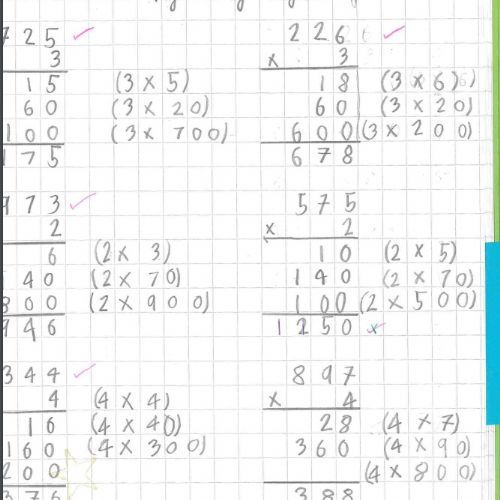 725
3
15 (3 x 5)
60 (3 x 20)
100 (3 x 700)
175
226
x 3
18 (3 x 6)
60 (3 x 20)
600 (3 x 200)
678
973
2
6 (2 x 3)
40 (2 x 70)
800 (2 x 900)
946
575
x 2
10 (2 x 5)
140 (2 x 70)
100 (2 x 500)
1250
344
4
16 (4 x 4)
(4 x 40)
160 (4 x 300)
200
376
897
x 4
28 (4 x 7)
360 (4 x 90)
(4 x 800)
388